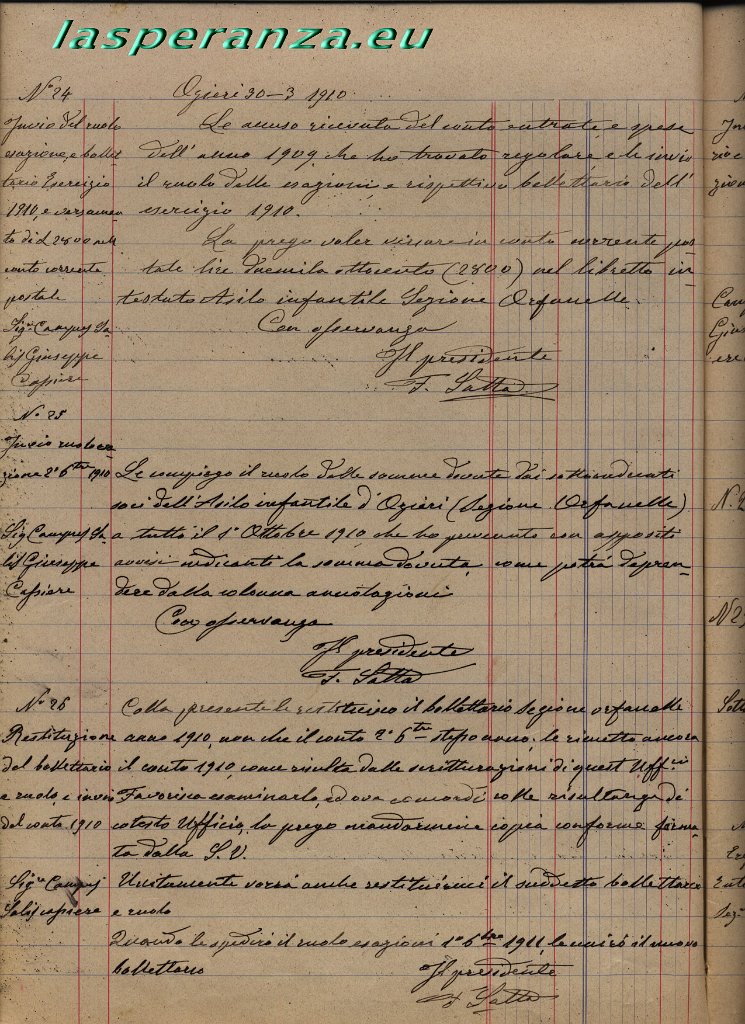 lasperanza.eu
No 24
Ozieri 30-3 1910
Invio del ruolo
esazione, e bollet
tario Esercizio
1910, e versamen
to di L 2800 nel
conto corrente
postale
Sigr Campus Sa-
lis Giuseppe
Cassiere
Le accuso ricevuta del conto entrate e spese
dell'anno 1909, che ho trovato regolare, e le invio
il ruolo delle esazioni, e rispettivo bollettario dell'
esercizio 1910.
La prego voler versare in conto corrente pos-
tale lire duemila ottocento (2800) nel libretto in-
testato Asilo infantile Sezione Orfanelle.
Con osservanza
Il presidente
F. Satta
No 25
Invio ruolo esa-
zione 2o 6tre 1910
Sig Campus Sa-
lis Giuseppe
Cassiere
Le compiego il ruolo delle somme dovute dai sottoindicati
soci dell'Asilo infantile d'Ozieri (Sezione Orfanelle)
a tutto il 1o Ottobre 1910, che ho con appositi
avvisi indicanti la somma dovuta, come potrà depren-
dere dalla colonna annotazioni
Con osservanza
Il presidente
F. Satta
No 26
Restituzione
del bollettario
e ruolo, e invio
del conto 1910
Sigr Campus
Salis cassiere
Colla presente le restituisco il bollettario Sezione orfanelle
anno 1910, non che il conto 2o 6tre stesso anno; le rimetto ancora
il conto 1910, come risulta dalle scritturazioni di quest'Uffcio
Favorisca esaminarlo, ed ove concordi colle risultanze di
cotesto Ufficio, la prego mandarmene copia conforme firma-
ta dalla S. V.
Unitamente vorrà anche restituirmi il suddetto bollettario
e ruolo
Quando le spedirò il ruolo esazioni 1o 6tre 1911, le unirò il nuovo
bollettario
Il presidente
F. Satta